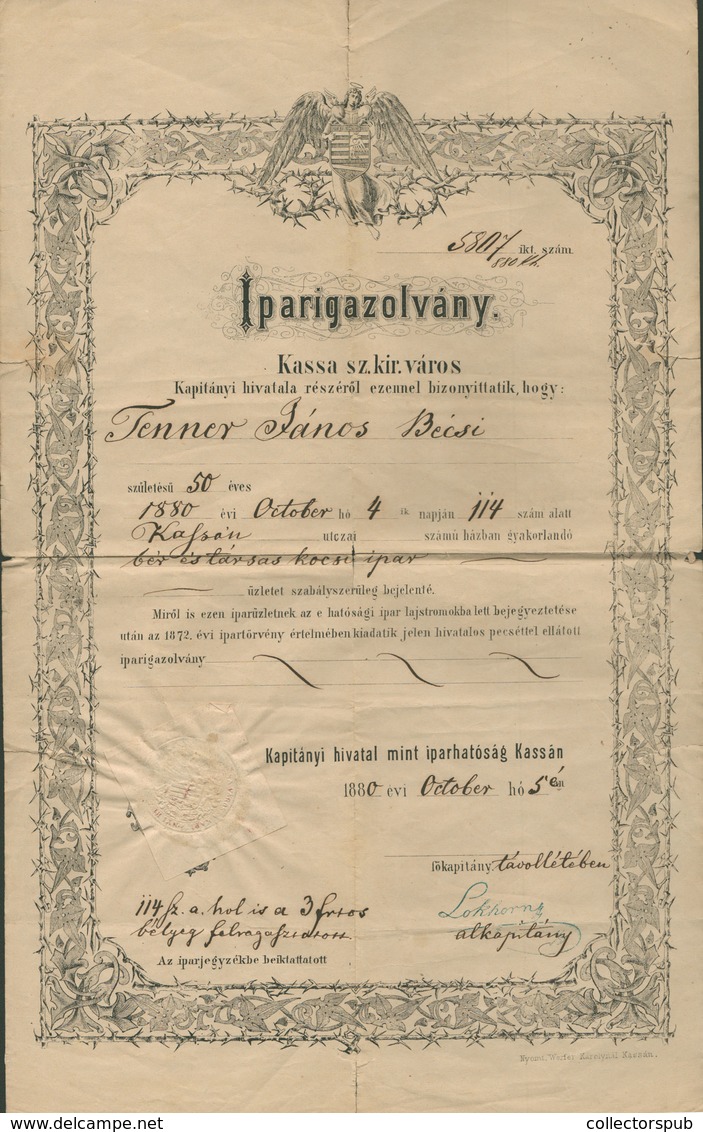 5807 ikt. szám.
880
Iparigazolvány.
Kassa sz. kir. város
Kapitányi hivatala részéről ezennel bizonyittatik, hogy:
Tenner János Bécsi
születésű 50 éves
1880 évi October hó 4 ik napján 114 szám alatt
Kassán utczai számú házban gyakorlandó
bér és társas kocsi ipar
üzletet szabályszerüleg bejelenté.
Miről is ezen iparüzletnek az e hatósági ipar lajstromokba lett bejegyeztetése
után az 1872. évi ipartörvény értelmében kiadatik jelen hivatalos pecséttel ellátott
iparigazolvány
Kapitányi hivatal mint iparhatóság Kassán
1880 évi October hó 5 én
főkapitány távollétében
114 sz. a. hol is a 3 frtos
bélyeg felragasztatott
Lokhorny
alkapitány
Az iparjegyzékbe beiktattatott
Nyomt. Werfer Károlynál Kassán.
delcampe.net
collectorspub